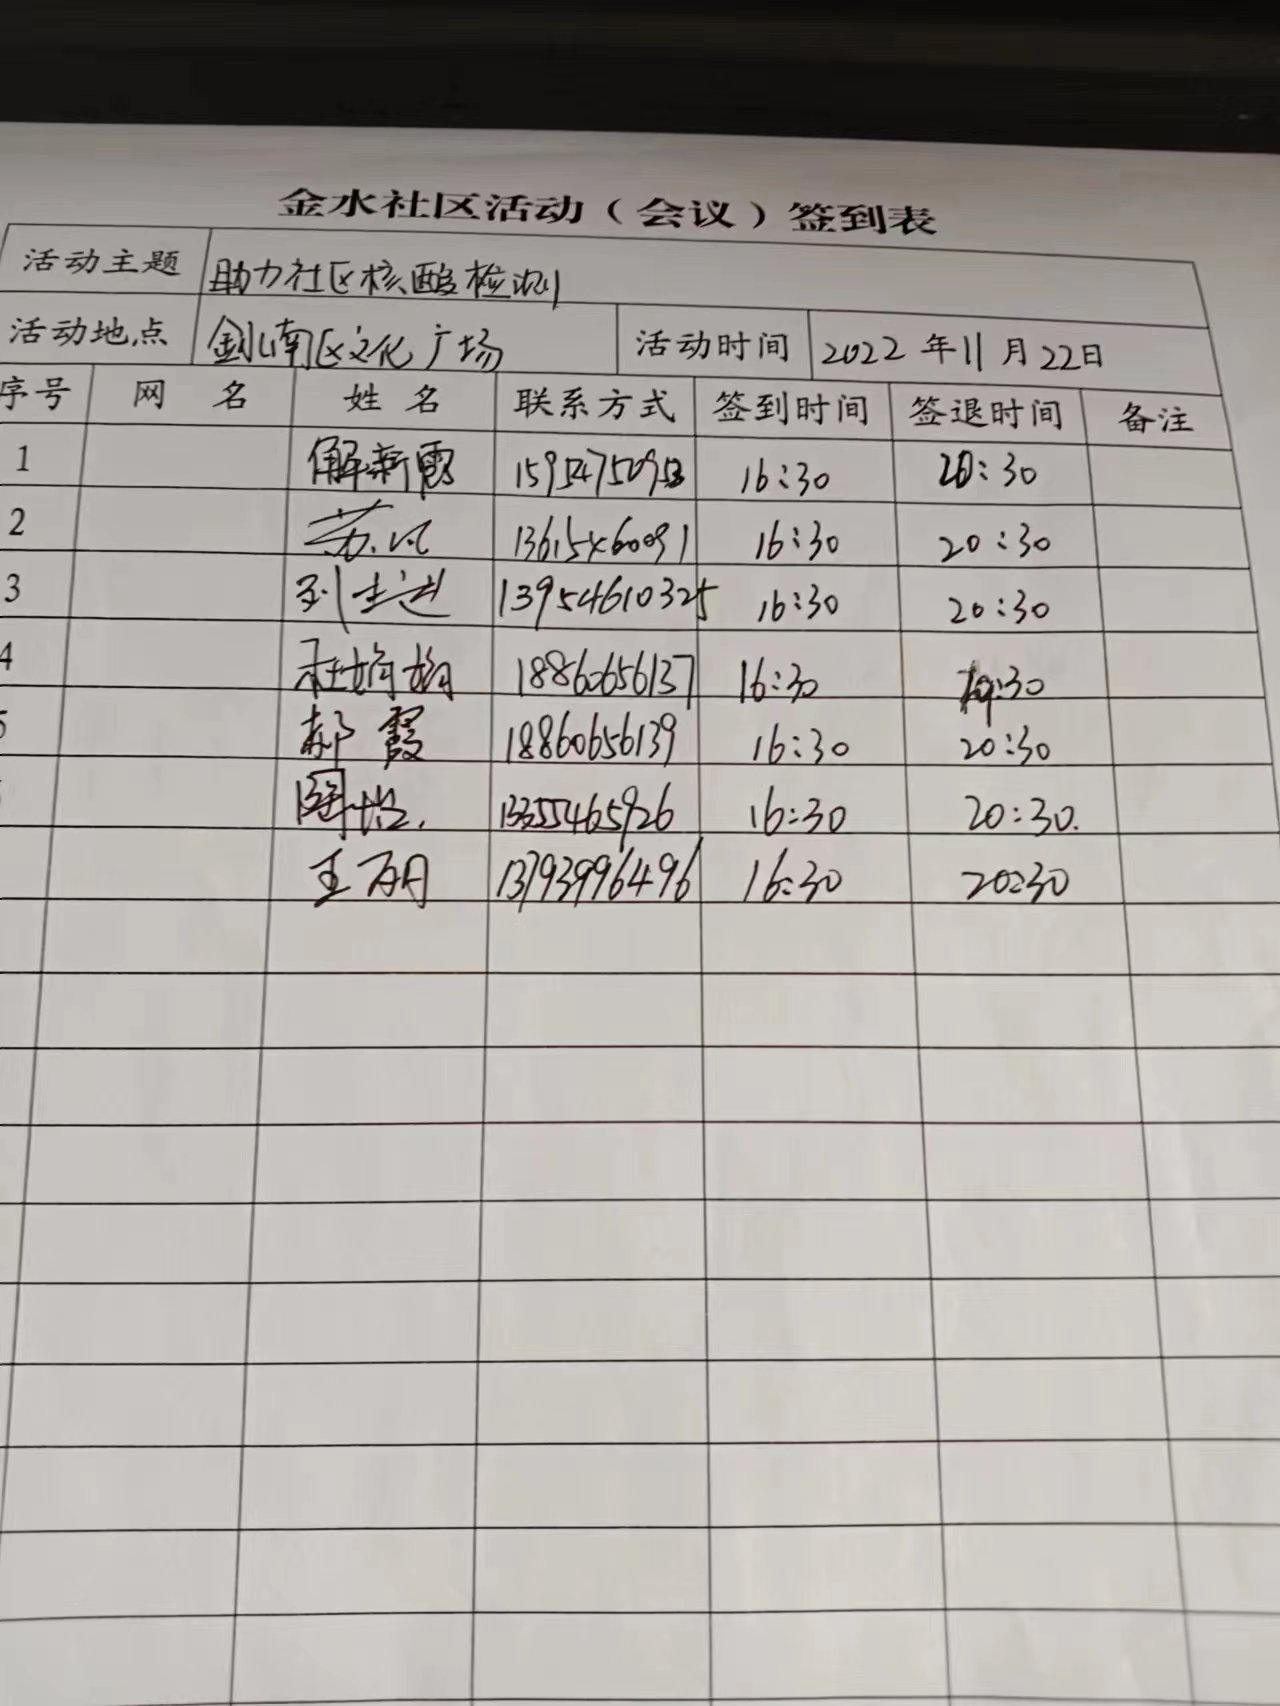 金水社区活动（会议）签到表
活动主题 助力社区核酸检测
活动地点 金水南区文化广场 活动时间 2022年11月22日
序号 网名 姓名 联系方式 签到时间 签退时间 备注
1 解新霞 16:30 20:30
2 苏 16:30 20:30
3 刘 13954610325 16:30 20:30
4 杜娟娟 18860656137 16:30 :30
5 郝霞 18860656139 16:30 20:30
13355465926 16:30 20:30.
王丽 13793996496 16:30 20:30